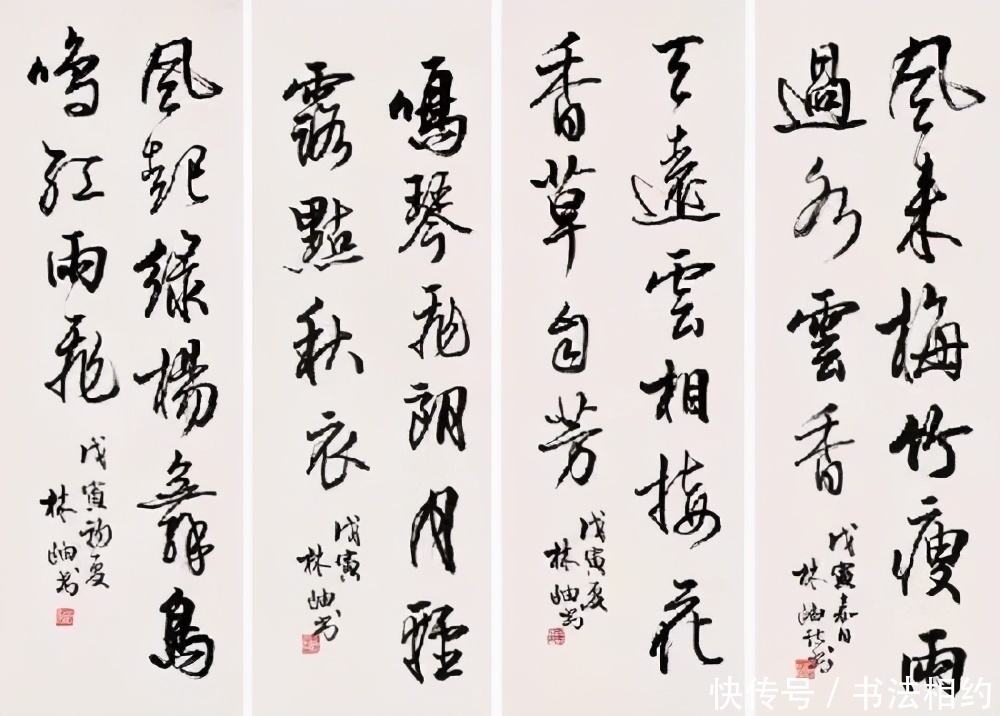 風來梅竹瘦雨
過水雲香
戊寅嘉日
林岫書
天遠雲相接花
香草自芳
戊寅夏
林岫書
鳴琴飛朗月輕
露點秋衣
戊寅
林岫書
風起綠楊舞鳥
鳴紅雨飛
戊寅初夏
林岫書
快传号 / 书法相约